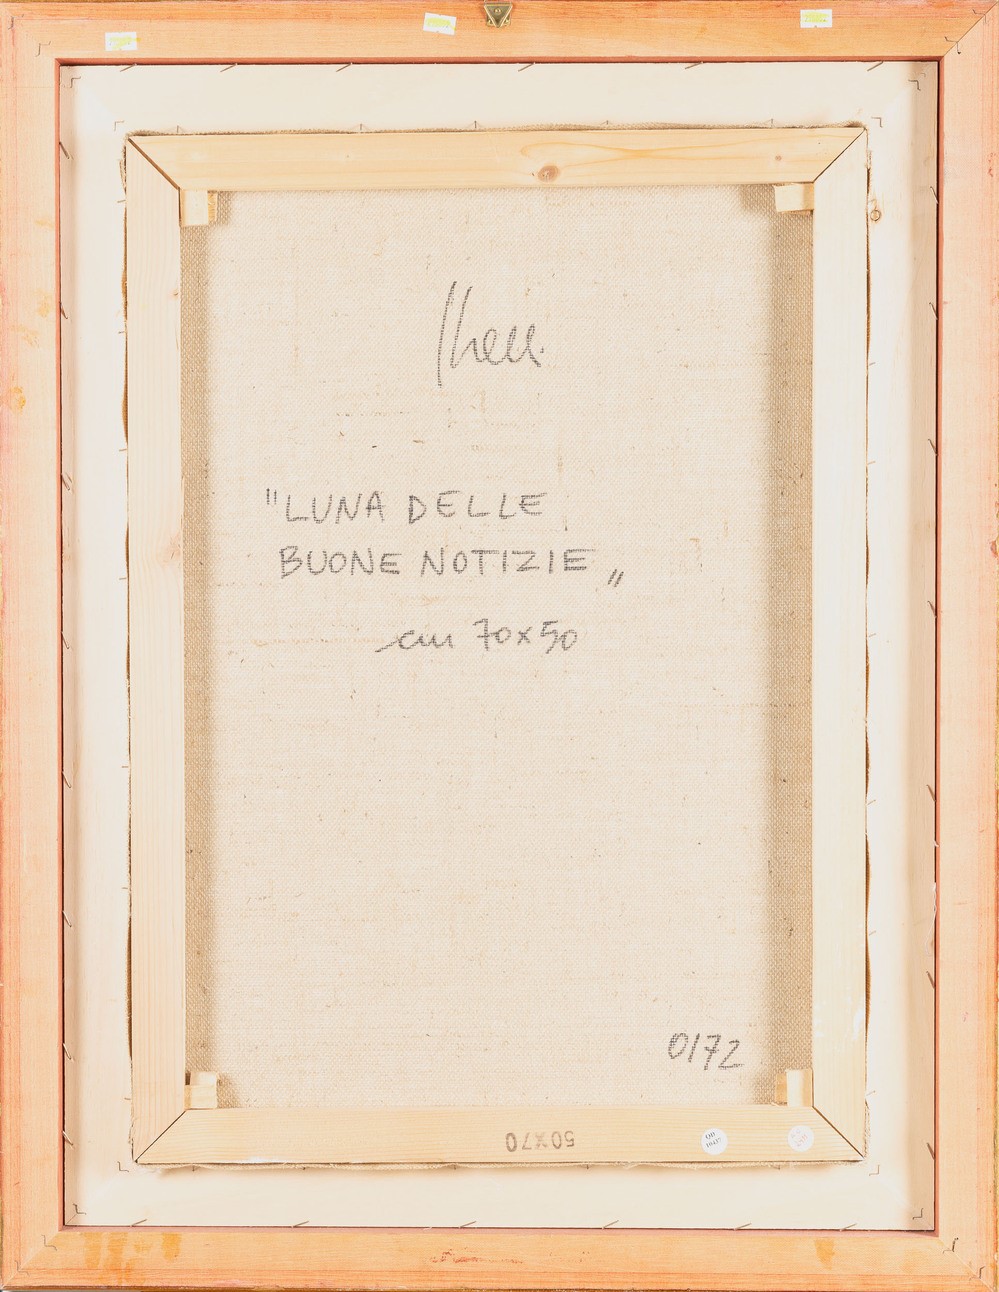 "LUNA DELLE
BUONE NOTIZIE"
cm 70x50
0172
50x70